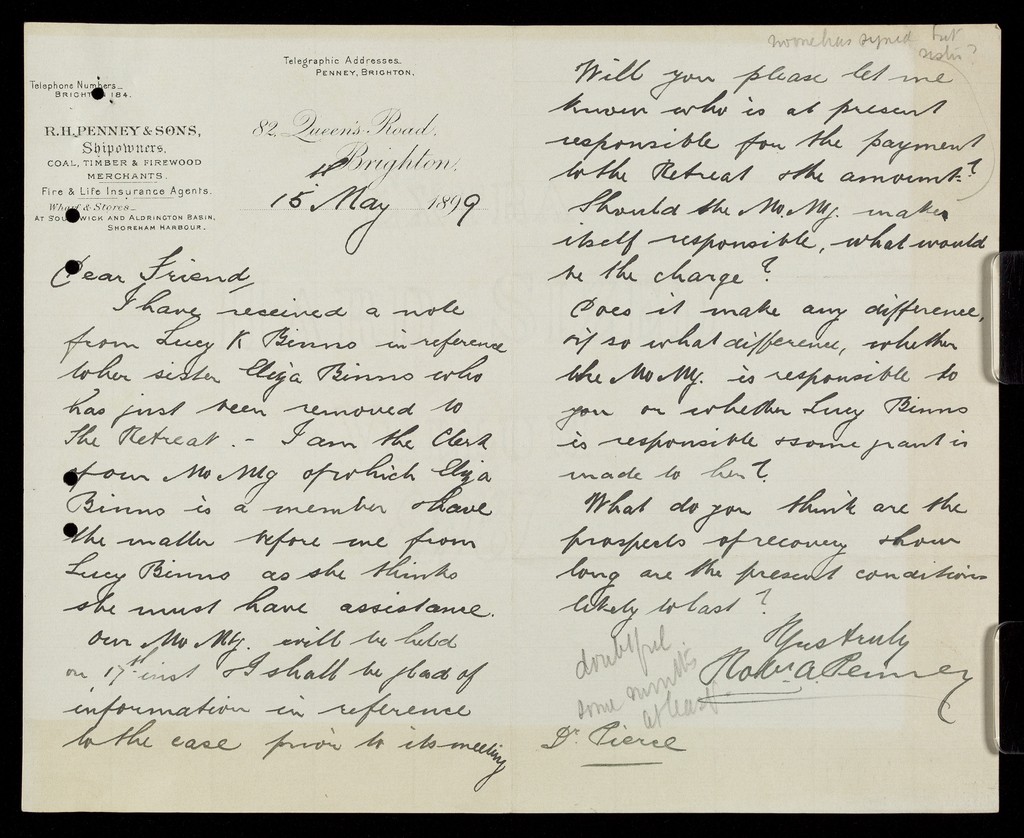 Telegraphic Addresses_
PENNEY, BRIGHTON.
Telephone Numbers_
BRIGHTON 184.
R.H. PENNEY & SONS,
Shipowners,
COAL, TIMBER & FIREWOOD
MERCHANTS.
Fire & Life Insurance Agents.
Wharf & Stores_
AT SOUTHWICK AND ALDRINGTON BASIN,
SHOREHAM HARBOUR.
82, Queen's Road,
Brighton,
15 May 1899
Dear Friend,
I have received a note
from Lucy K Binns in reference
to her sister Eliza Binns who
has just been removed to
The Retreat. - I am the Clerk
of our Mo Mtg of which Eliza
Binns is a member & have
the matter before me from
Lucy Binns as she thinks
she must have assistance.
Our Mo Mtg. will be held
on 17th inst & I shall be glad of
information in reference
to the case prior to its meeting
no one has signed but
sister?
Will you please let me
know who is at present
responsible for the payment
to the Retreat & the amount?
Should the Mo. Mtg. make
itself responsible, what would
be the charge?
Does it make any difference,
& if so what difference, whether
the Mo Mtg. is responsible to
you or whether Lucy Binns
is responsible & some grant is
made to her?
What do you think are the
prospects of recovery & how
long are the present conditions
likely to last?
Yours truly
Robt. A. Penney
doubtful
some months
at least
Dr. Pierce